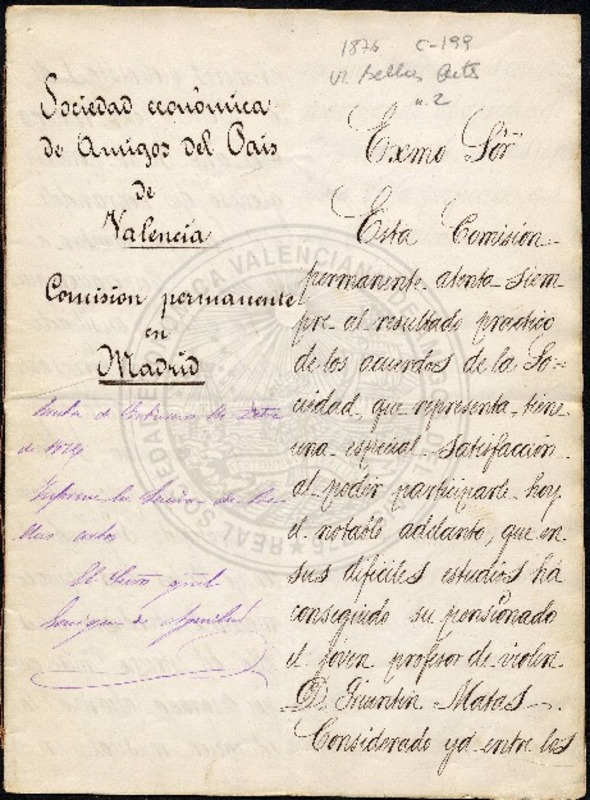 1876 C-199
VI Bellas Artes
n. 2
Sociedad económica
de Amigos del Pais
de
Valencia
Comision permanente
en
Madrid
Junta de Gobierno
de
Informe la Seccion de Be-
llas artes
El Srio gral
Exmo Sor
Esta Comision
permanente atenta siem
pre al resultado practico
de los acuerdos de la So-
ciedad, que representa, tiene
una especial satisfacción
al poder participarte hoy
el notable adelanto, que en
sus dificiles estudios há
conseguido su pensionado
el joven profesor de violin
D. Matas
Considerado yá entre los
REAL SOCIEDAD ECONÓMICA VALENCIANA DE AMIGOS DEL PAÍS 1776